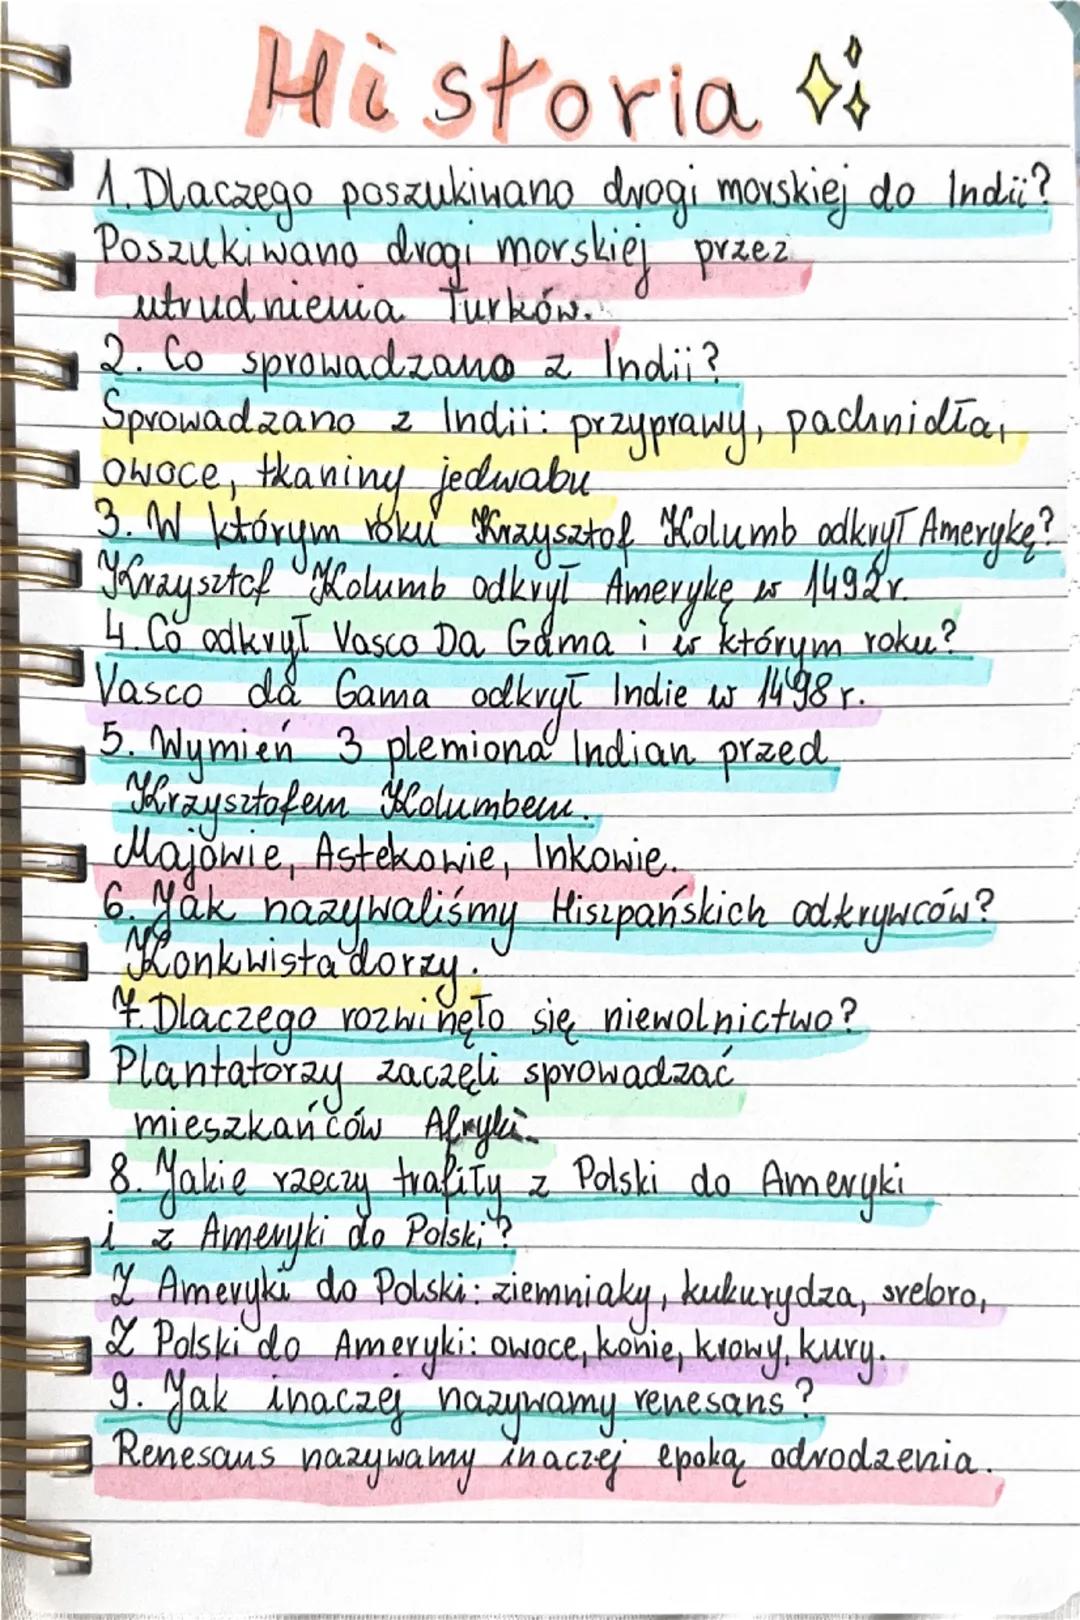 Historia
1. Dlaczego poszukiwano drogi morskiej do Indii?
Poszukiwano drogi morskiej przez
utrudnienia Turków.
2. Co sprowadzano z Indii?
Sprowadzano z Indii: przyprawy, pachnidła,
owoce, tkaniny jedwabu
3. W którym roku Krzysztof Kolumb odkrył Amerykę?
Krzysztof Kolumb odkrył Amerykę w 1492r.
4. Co odkrył Vasco Da Gama i w którym roku?
Vasco da Gama odkrył Indie w 1498 r.
5. Wymień 3 plemiona Indian przed
Krzysztofem Kolumbem.
Majowie, Astekowie, Inkowie.
6. Jak nazywaliśmy Hiszpańskich odkrywców?
Konkwistadorzy.
7. Dlaczego rozwinęło się niewolnictwo?
Plantatorzy zaczęli sprowadzać
mieszkańców Afryki.
8. Jakie rzeczy trafiły z Polski do Ameryki
i z Ameryki do Polski?
Z Ameryki do Polski: ziemniaky, kukurydza, srebro,
Z Polski do Ameryki: owoce, konie, krowy, kury.
9. Jak inaczej nazywamy renesans?
Renesans nazywamy inaczej epoką odrodzenia.